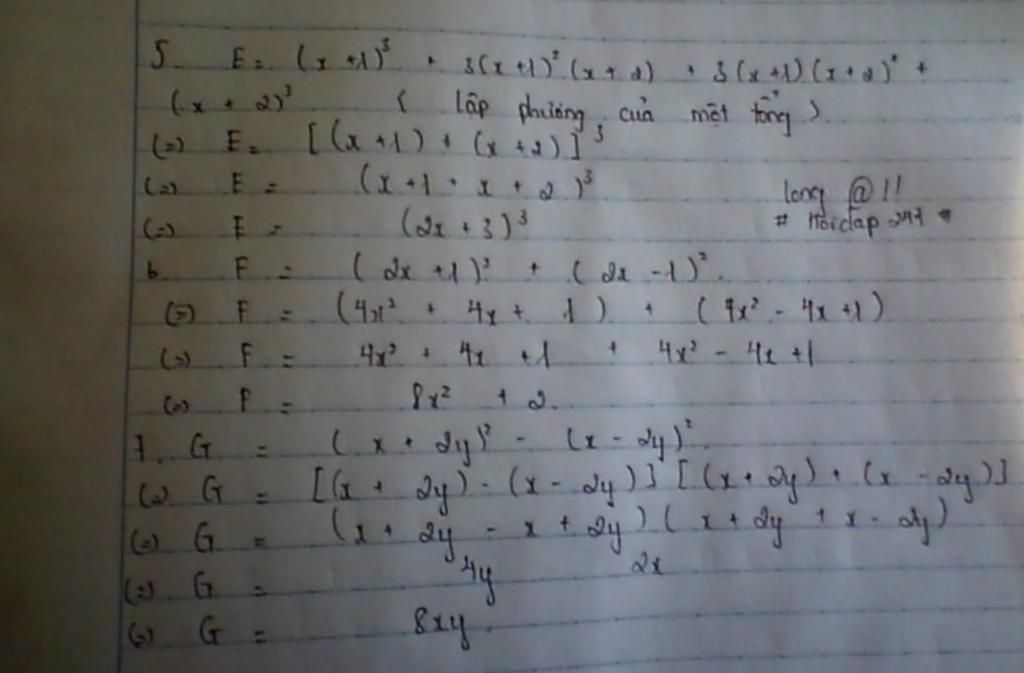 5. E = (x+1)³ + 3(x+1)²(x+2) + 3(x+1)(x+2)² +
(x+2)³ ( lập phương của một tổng )
(=) E = [(x+1) + (x+2)]³
(=) E = (x+1+x+2)³
long @!!
(=) E = (2x+3)³
# Hoidap 247 #
6. F = (2x+1)² + (2x-1)².
(=) F = (4x² + 4x + 1) + (4x² - 4x + 1)
(=) F = 4x² + 4x + 1 + 4x² - 4x + 1
(=) F = 8x² + 2.
7. G = (x+2y)² - (x-2y)².
(=) G = [(x+2y) - (x-2y)] [(x+2y) + (x-2y)]
(=) G = (x+2y-x+2y)(x+2y+x-2y)
(=) G = 4y 2x
(=) G = 8xy.